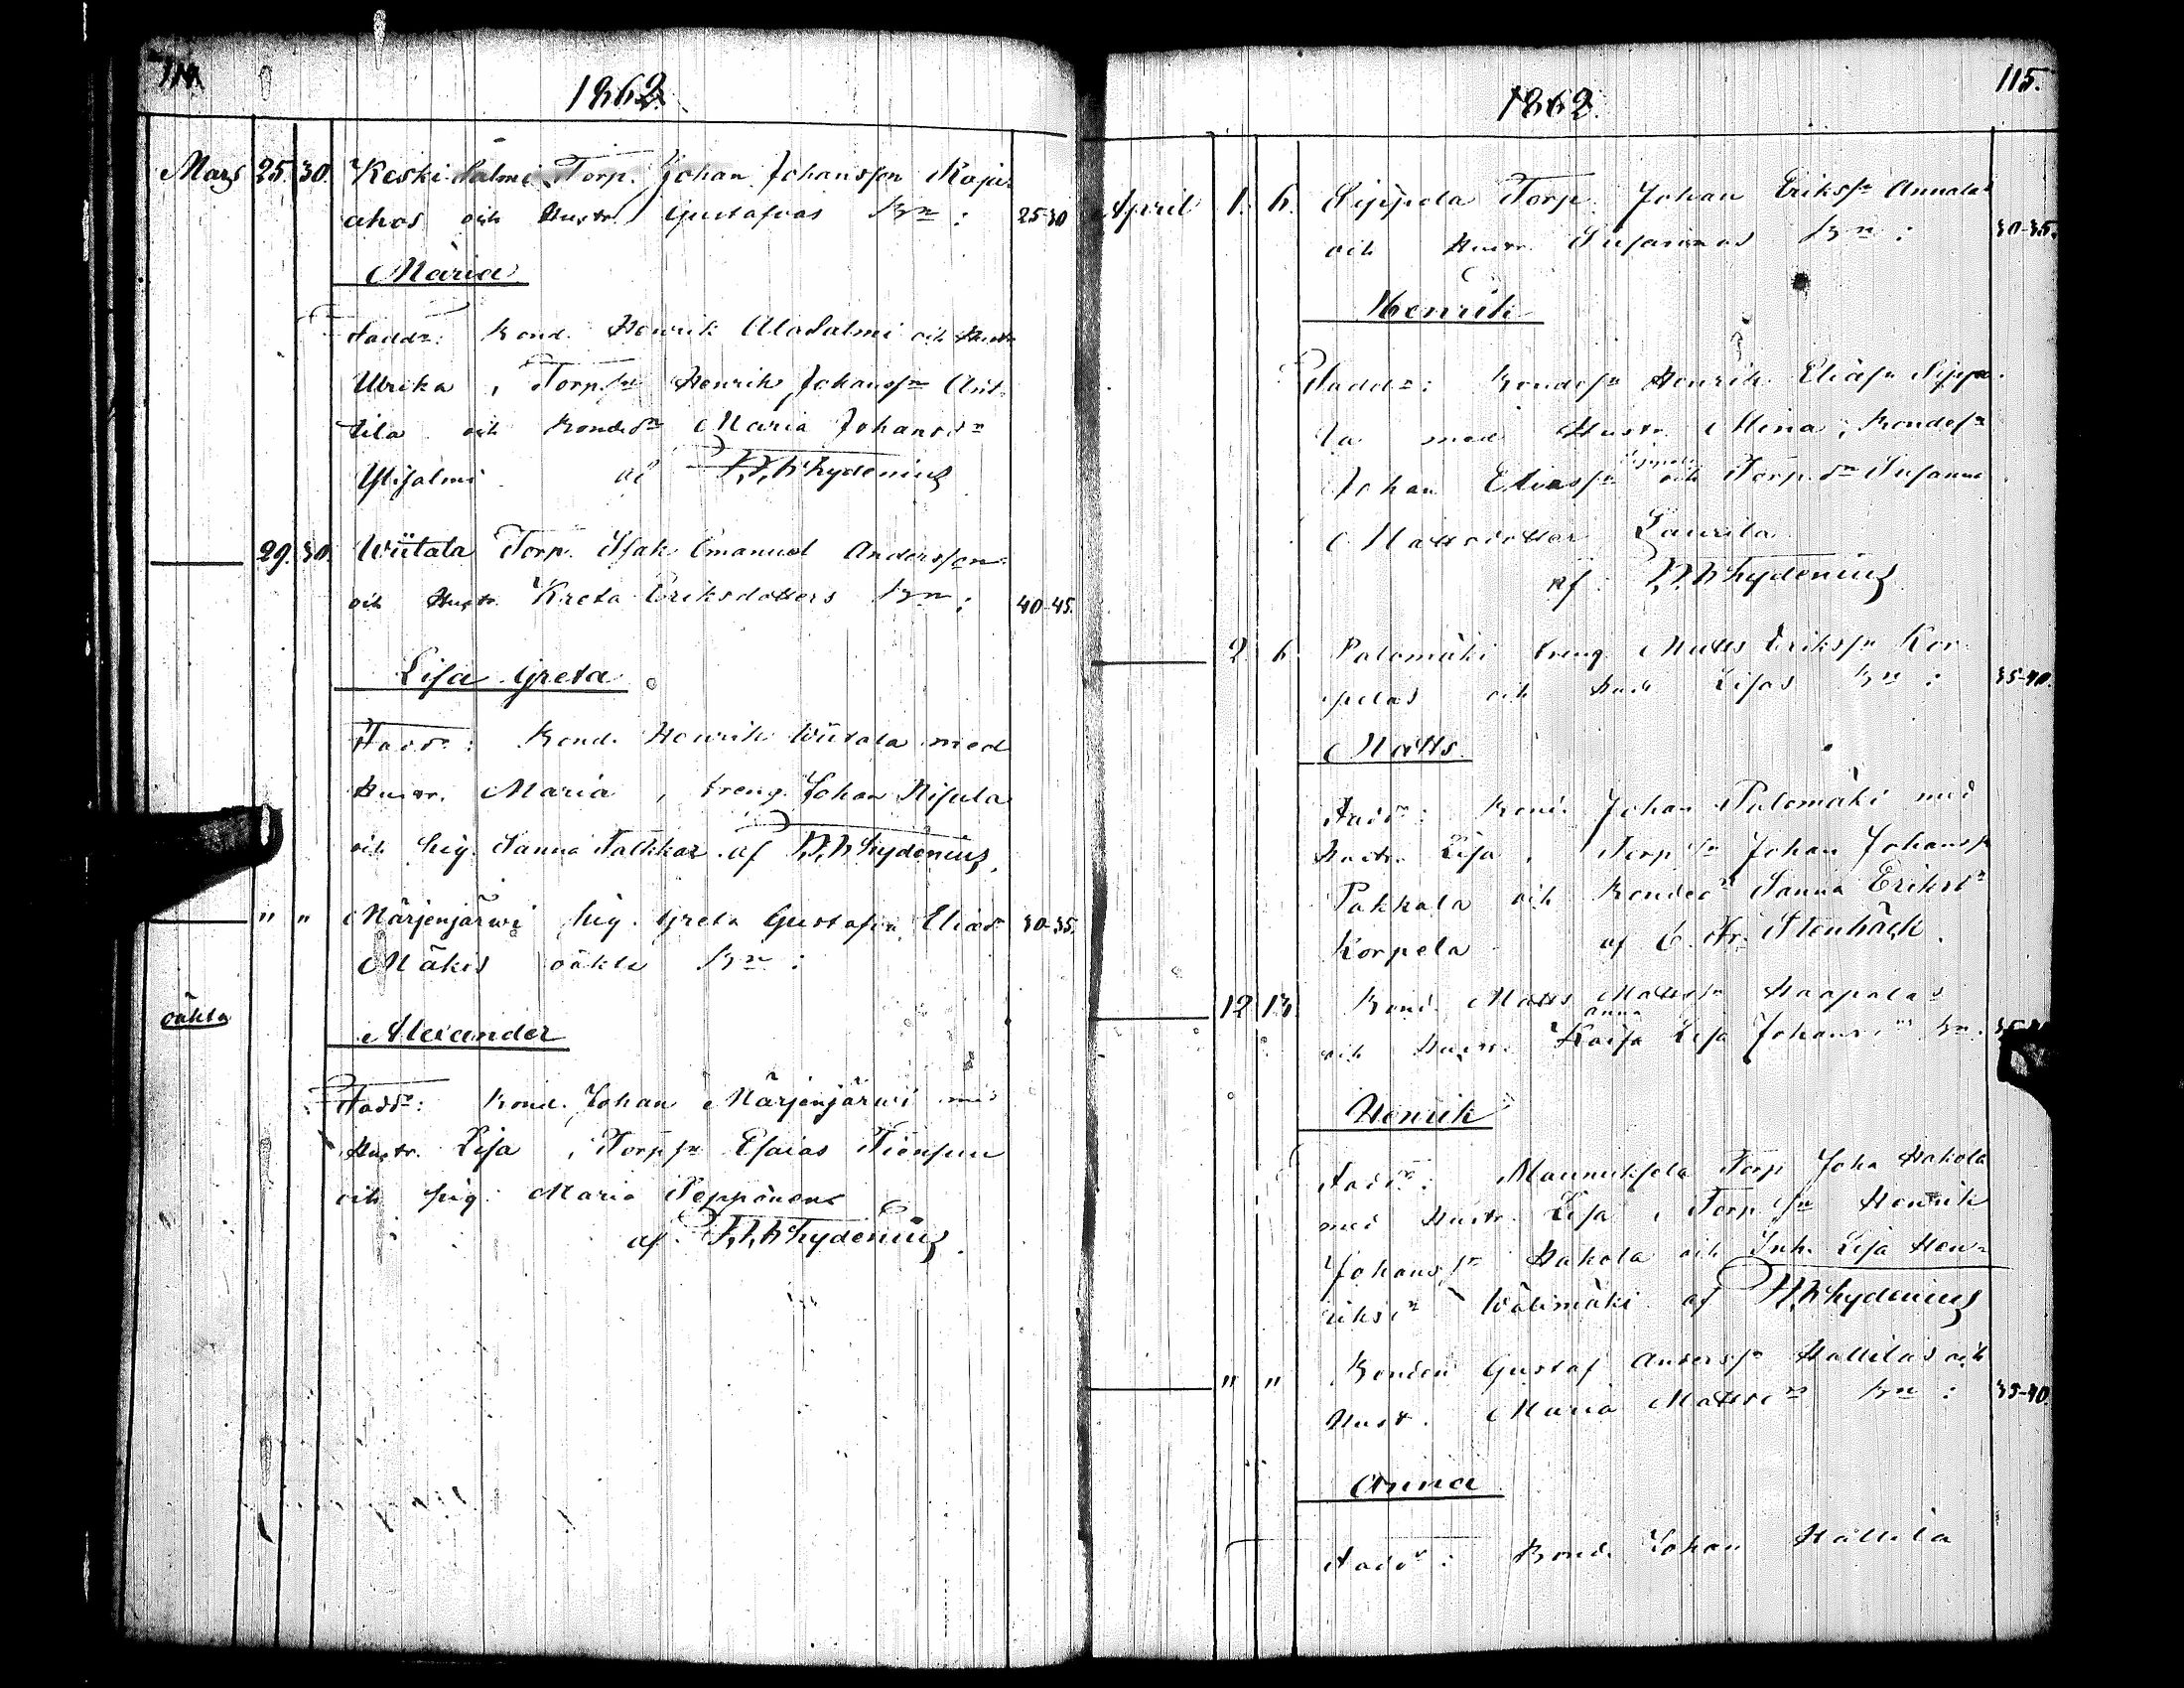 114.
1862.
Mars 25. 30. Keski Salmi Torp. Johan Johansson Koja-
ahos och Hustr. Gustafvas Bn: 25-30
Maria
Faddr: Bond. Henrik AlaSalmi och Hustr
Ulrika, Torp.sn Henrik Johanssn Ant-
tila och Bondedr Maria Johansdr
Ylisalmi af Lydenius
29. 30. Wiitala Torp. Isak Emanuel Andersson
och Hustr. Kreta Eriksdotters Bn: 40-45.
Lisa Greta
Faddr: Bond. Henrik Wiitala med
Hustr. Maria, dreng. Johan Nisula
och pig. Sanna Talkkar af Lydenius.
" " Närjenjärwi pig. Greta Gustafva Eliasdr 30-35.
Mäkis oäkta Bn:
oäkta
Alexander
Faddr: Bond. Johan Närjenjärwi med
Hustr. Lisa, Torpsn Esaias Tiensuu
och pig. Maria Seppänens
af Lydenius.
115.
1862.
April 1. 6. Sippola Torp. Johan Erikssn Annalas
och Hustr. Susannas Bn: 30-35.
Henrik
Faddr: Bondesn Henrik Eliassn Sippo-
la med Hustr. Mina, Bondesn
Johan Eliassn Sippola och Torp.dr Susanna
Mattsdotter Laurila
af: Lydenius
2. 6. Palomäki dreng. Matts Erikssn Kor-
pelas och Hustr Lisas Bn: 35-40.
Matts
Faddr: Bond. Johan Palomäki med
Hustr. Lisa, Torpsn Johan Johanssn
Pakkala och Bondedr Sanna Eriksdr
Korpela af C. Fr. Stenbäck.
12 13 Bond. Matts Mattssn Haapalas
anna
och Hustr. Kaisa Lisa Johansdrs Bn.
Henrik
Faddr: Mannikfela Torp Joha Hakola
med Hustr. Lisa, Torp.sn Henrik
Johanssn Hakola och Inh. Lisa Hen-
riksdr Wälimäki af Lydenius
" " Bonden Gustaf Anderssn Hallilas och
Hustr. Maria Mattsdrs Bn: 35-40.
Anna
Faddr: Bond. Johan Hallila